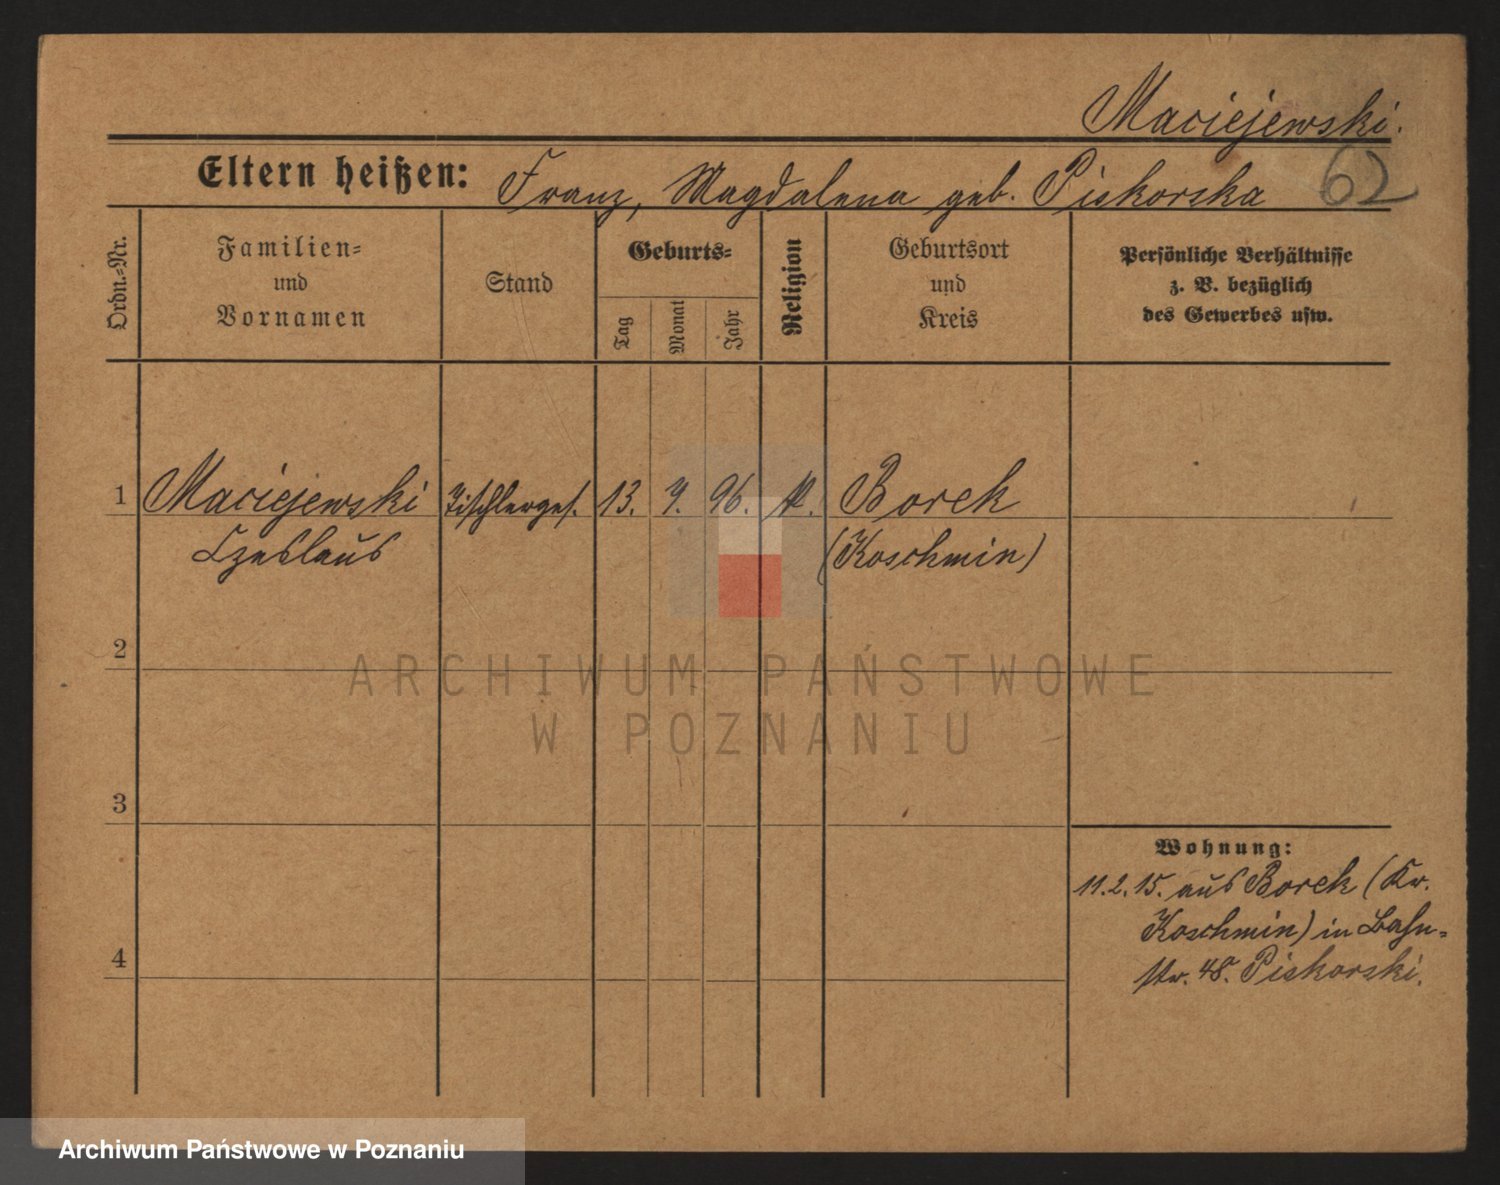 Maciejewski.
Eltern heißen: Franz, Magdalena geb. Piskorska 62
Ordn.=Nr.
Familien=
und
Vornamen
Stand
Geburts=
Tag
Monat
Jahr
Religion
Geburtsort
und
Kreis
Persönliche Verhältnisse
z. B. bezüglich
des Gewerbes usw.
1 Maciejewski Tischlerges. 13. 7. 96. k. Borek
Czeslaus (Koschmin)
2
3
4
Wohnung:
11.2.15. aus Borek (Kr.
Koschmin) in Bahn=
str. 48. Piskorski.
ARCHIWUM PAŃSTWOWE
W POZNANIU
Archiwum Państwowe w Poznaniu